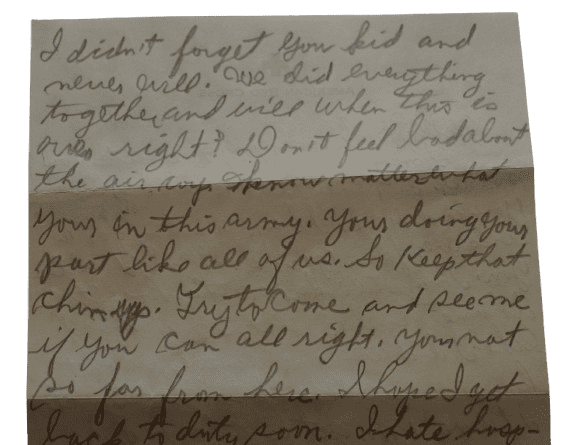 I didn't forget you kid and
never will. We did everything
together, and will when this is
over right? Don't feel bad about
the air corp. know matter what
your in this army. Your doing your
part like all of us. So keep that
chin up. Try to come and see me
if you can all right. Your not
so far from here. I hope I get
back to duty soon. I hate hosp-